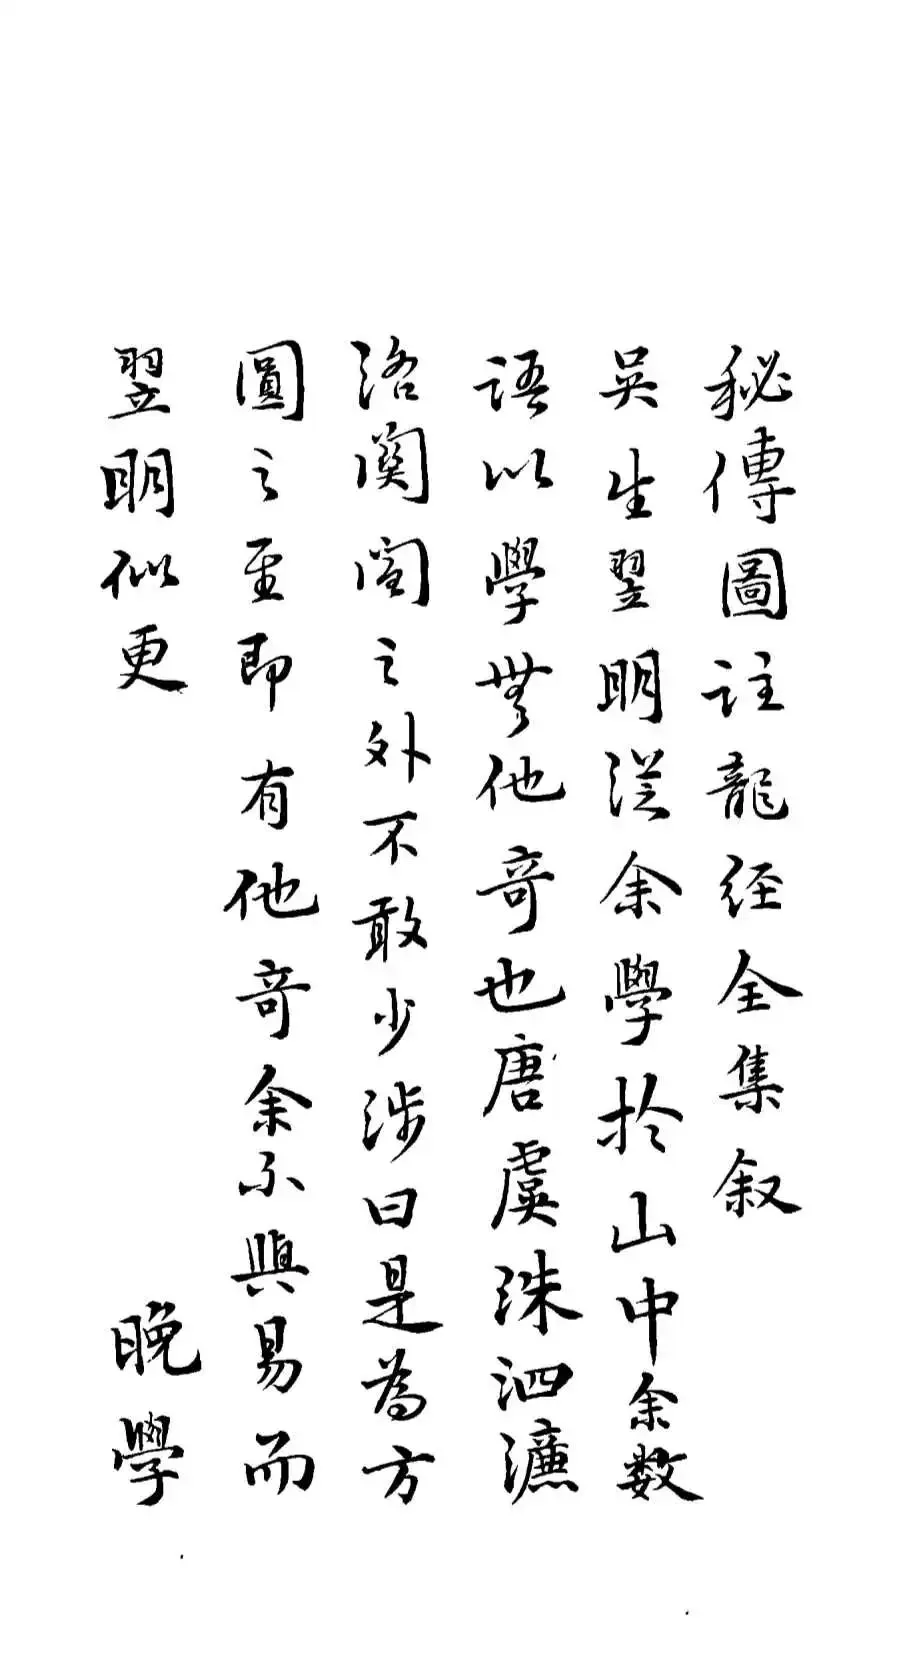 秘傳圖註龍经全集叙
吴生翌明従余學扵山中余数
語以學無他奇也唐虞洙泗濂
洛関閩之外不敢少涉曰是為方
圓之至即有他奇余不與易而
翌明似更 晚學